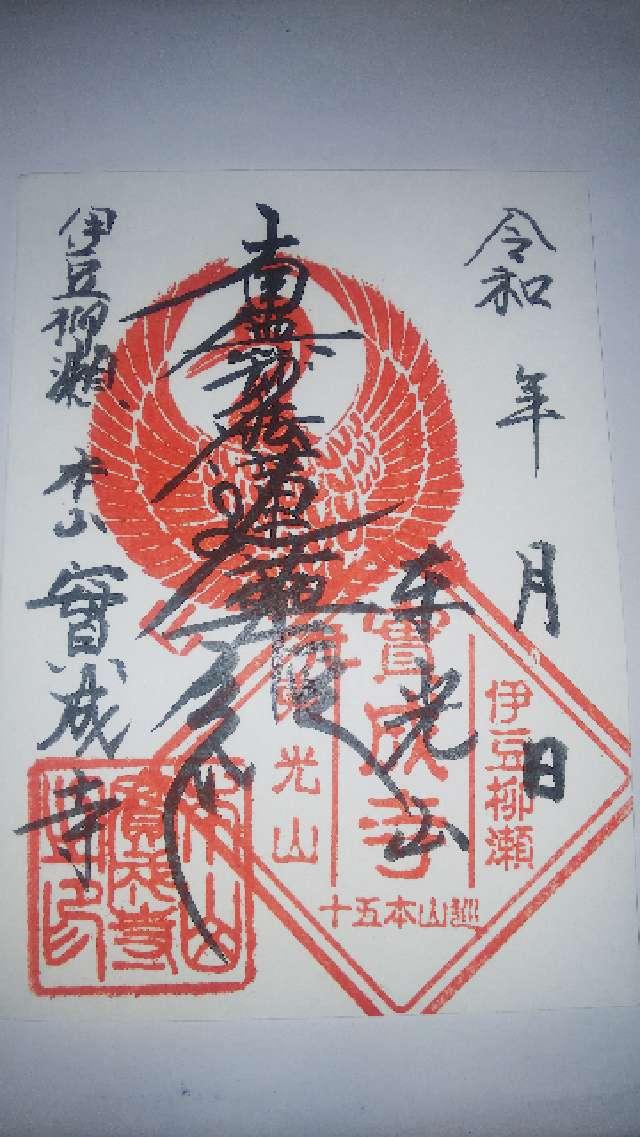 令和 年 月 日
南無妙法蓮華経
東光山
伊豆柳瀬
本山 實成寺
伊豆柳瀬
實成寺
東光山
十五本山巡
本山
實成寺